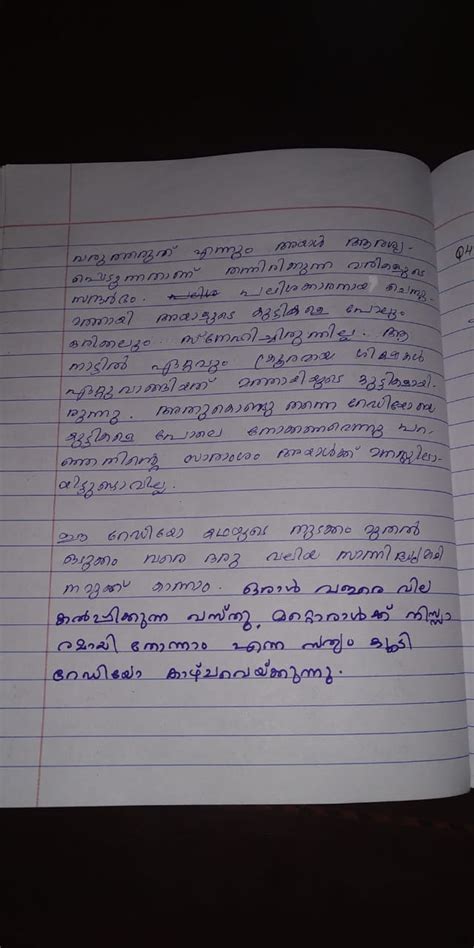 വരുത്തരുത് എന്നും അയാൾ ആവശ്യ-
പ്പെടുന്നതാണ് തന്നിരിക്കുന്ന വരികളുടെ
സന്ദർഭം. പലിശക്കാരനായ ചെറു
മത്തായി അയാളുടെ കുട്ടികളെ പോലും
ഒരിക്കലും സ്നേഹിച്ചിരുന്നില്ല. ആ
നാട്ടിൽ ഏറ്റവും ക്രൂരമായ ശിക്ഷകൾ
ഏറ്റുവാങ്ങിയത് മത്തായിയുടെ കുട്ടികളായി
രുന്നു. അതുകൊണ്ടു തന്നെ റേഡിയോയെ
കുട്ടികളെ പോലെ നോക്കണമെന്നു പറ-
ഞ്ഞതിന്റെ സാരാംശം അയാൾക്ക് മനസ്സിലാ
യിട്ടുണ്ടാവില്ല.
ഈ റേഡിയോ കഥയുടെ തുടക്കം മുതൽ
ഒടുക്കം വരെ ഒരു വലിയ സാന്നിദ്ധ്യമായി
നമുക്ക് കാണാം. ഒരാൾ വളരെ വില
കൽപ്പിക്കുന്ന വസ്തു, മറ്റൊരാൾക്ക് നിസ്സാ
രമായി തോന്നാം എന്ന സത്യം കൂടി
റേഡിയോ കാഴ്ചവെയ്ക്കുന്നു.
Q4